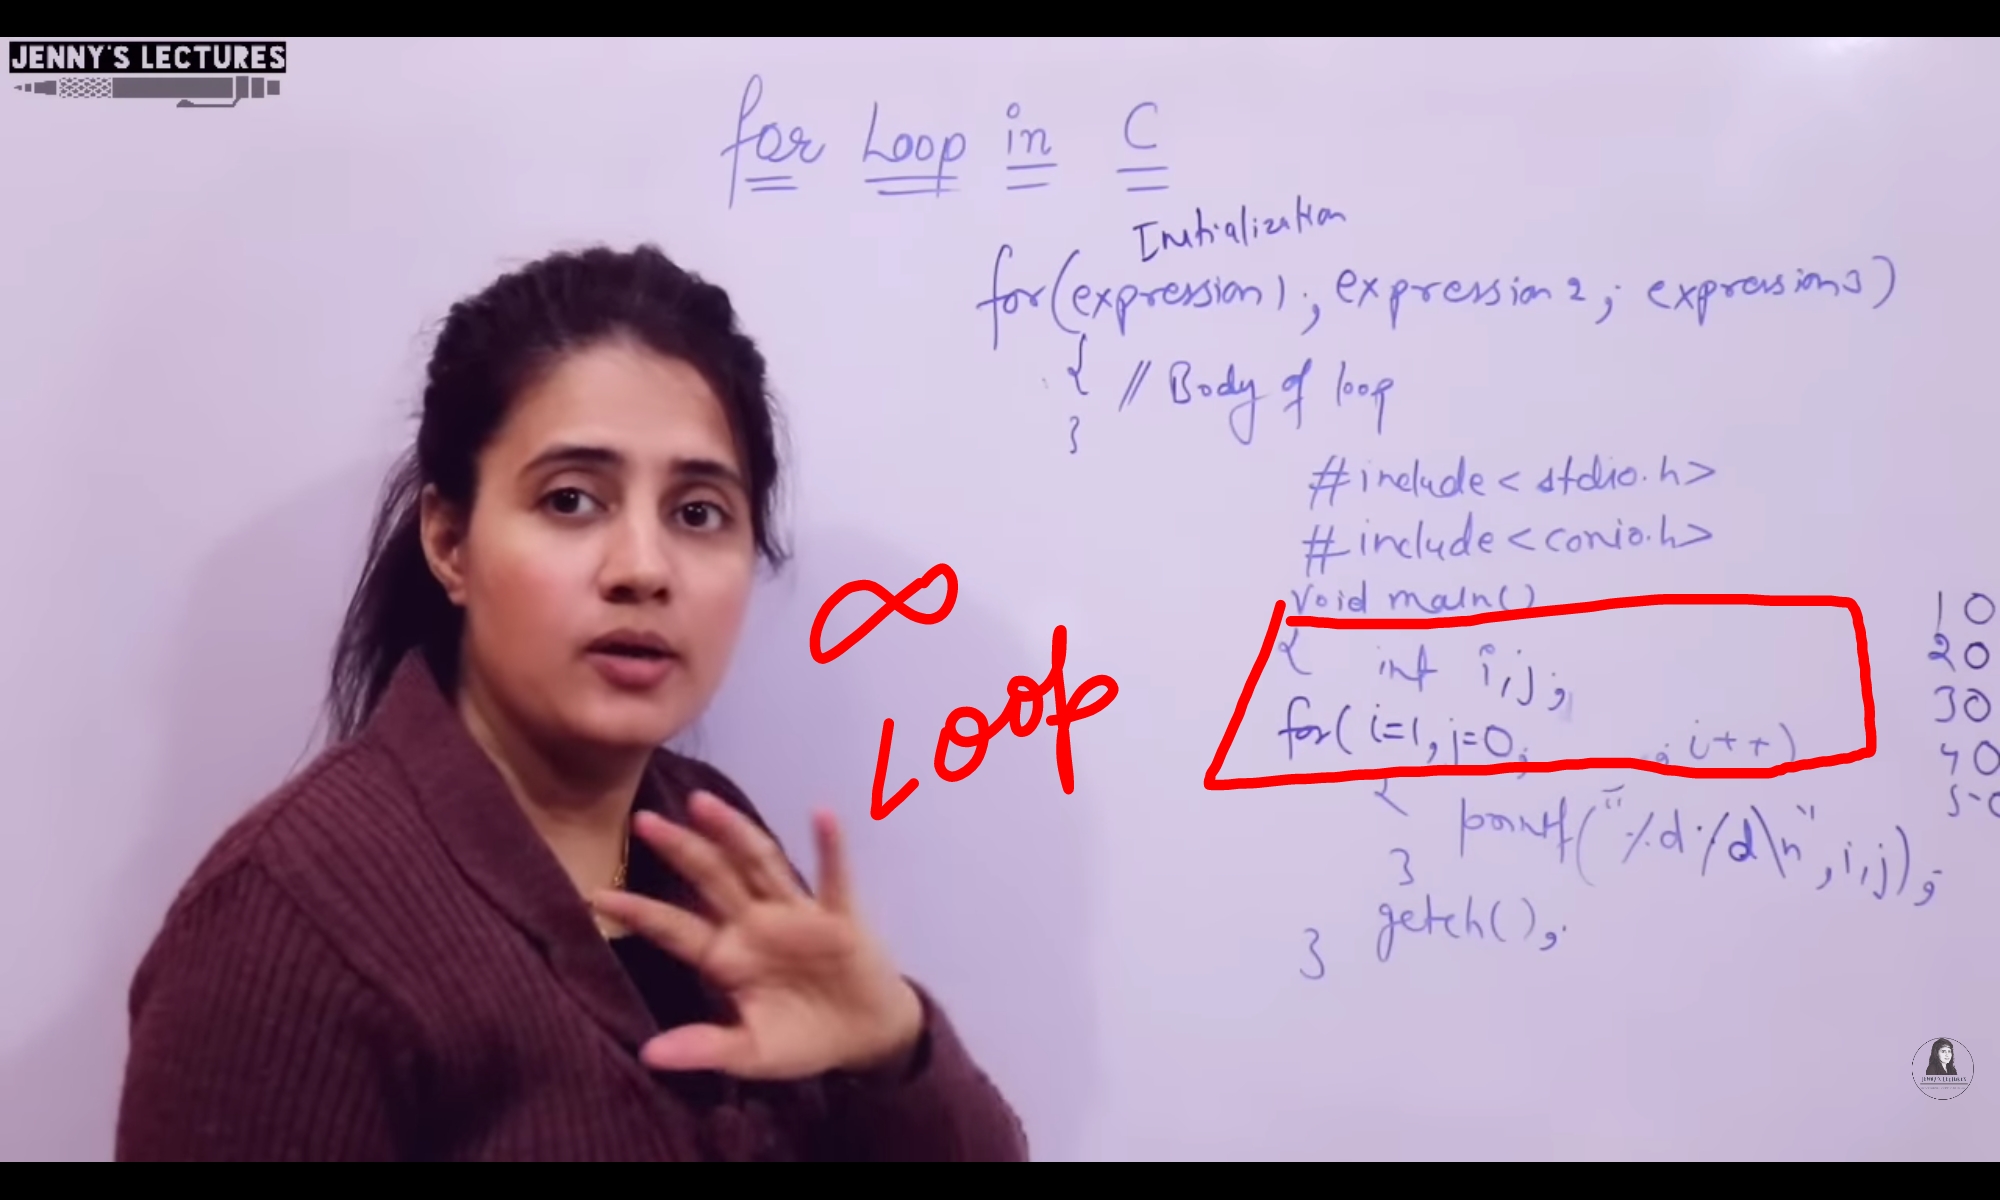 JENNY'S LECTURES
for Loop in C
Initialization
for(expression1; expression2; expression3)
{ // Body of loop
}
#include<stdio.h>
#include<conio.h>
void main()
{ int i,j;
for( i=1, j=0; ; i++)
{
printf("%d%d\n", i,j);
}
getch();
}
10
20
30
40
50
∞
Loop
JENNY'S LECTURES